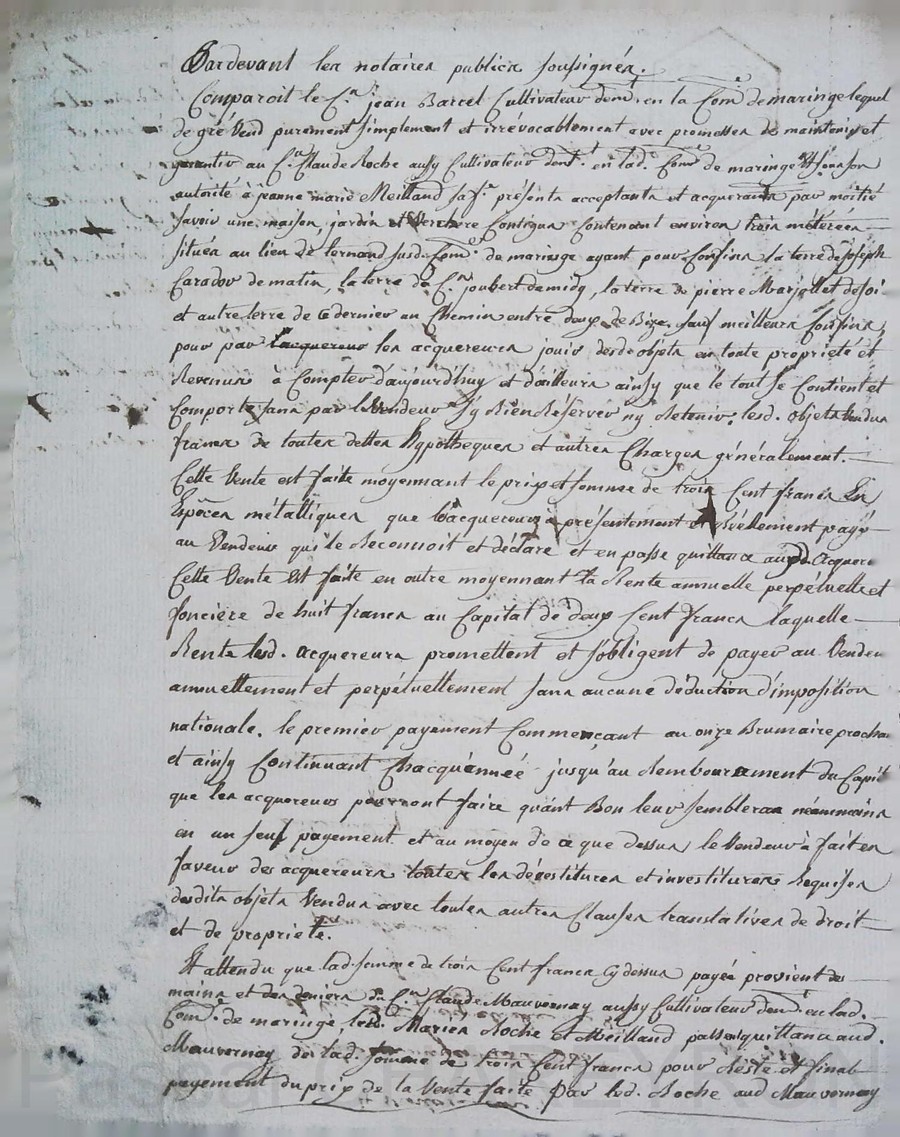 Pardevant les notaires publics soussignés.
Comparoit le C.en jean Barcel Cultivateur dem.t en la Com.e de maringe lequel
de gré Vend purement simplement et irrévocablement avec promesses de maintenir et
garantir au C.en Claude Roche aussy Cultivateur dem.t en lad. Com.e de maringe Et sous son
autorité à jeanne marie Meilland sa f.e présents acceptants et acquerants par moitié
savoir une maison, jardin et Verchere Contigus Contenant environ trois métérées
situés au lieu de susd. Com.e de maringe ayant pour Confins la terre de joseph
Caradot de matin, la terre du C.en joubert de midy, la terre de pierre Marjollet de soir
et autre terre de ce dernier un Chemin entre deux de Bize, sauf meilleurs Confins,
pour par les acquereurs jouir desd objets en toute propriété et
Revenus à Compter d'aujourd'huy et d'ailleurs ainsy que le tout se Contient et
Comporte sans par le Vendeur s'y Rien Réserver ny Retenir, lesd. objets Vendus
francs de toutes dettes hypotheques et autres Charges généralement.
Cette Vente est faite moyennant le prix et somme de trois Cent francs En
Espèces métalliques que l'acquereur a présentement et Réellement payé
au Vendeur qui le Reconnoit et déclare et en passe quittance auxd. Acquere
Cette Vente Est faite en outre moyennant la Rente annuelle perpétuelle et
foncière de huit francs au Capital de deux Cent francs laquelle
Rente lesd. acquereurs promettent et s'obligent de payer au Vendeu
annuellement et perpétuellement sans aucune déduction d'imposition
nationale, le premier payement Commençant au onze Brumaire procha
et ainsy Continuant Chacqu'année jusqu'au Rembourcement du Capit
que les acquereurs pourront faire quant Bon leur semblera néanmoins
en un seul payement et au moyen de ce que dessus le Vendeur à fait en
faveur des acquereurs toutes les dévestitures et investitures Requises
desdits objets Vendus avec toutes autres Clauses translatives de droit
et de propriété.
Et attendu que lad. somme de trois Cent francs Cy dessus payée provient des
mains et des deniers du C.en Claude Mauvernay aussy Cultivateur dem.t en lad.
Com.e de maringe lesd. Mariés Roche et Meilland passent quittance aud.
Mauvernay de lad. somme de trois Cent francs pour Reste et final
payement du prix de la Vente faite Par led. Roche aud Mauvernay